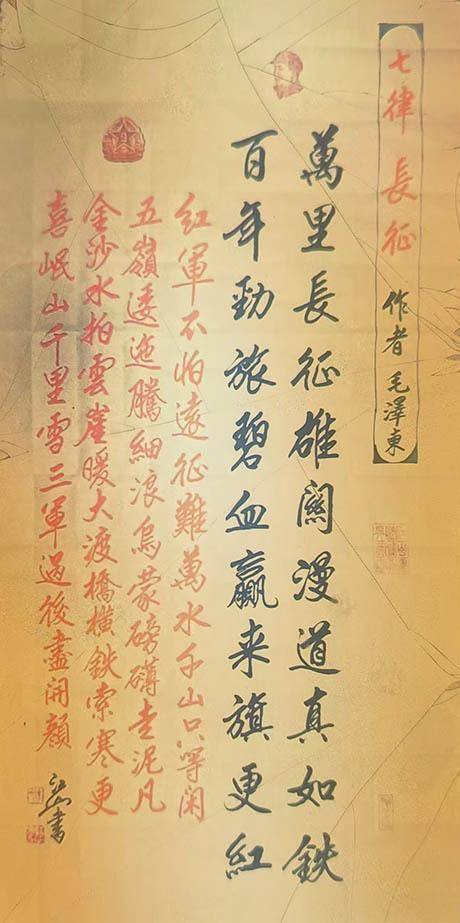 七律 長征 作者 毛澤東
萬里長征雄關漫道真如鉄
百年勁旅碧血贏来旗更紅
红軍不怕遠征難萬水千山只等闲
五嶺逶迤騰細浪烏蒙磅礴走泥凡
金沙水拍雲崖暖大渡橋横鉄索寒更
喜岷山千里雪三軍过後盡开顔
書